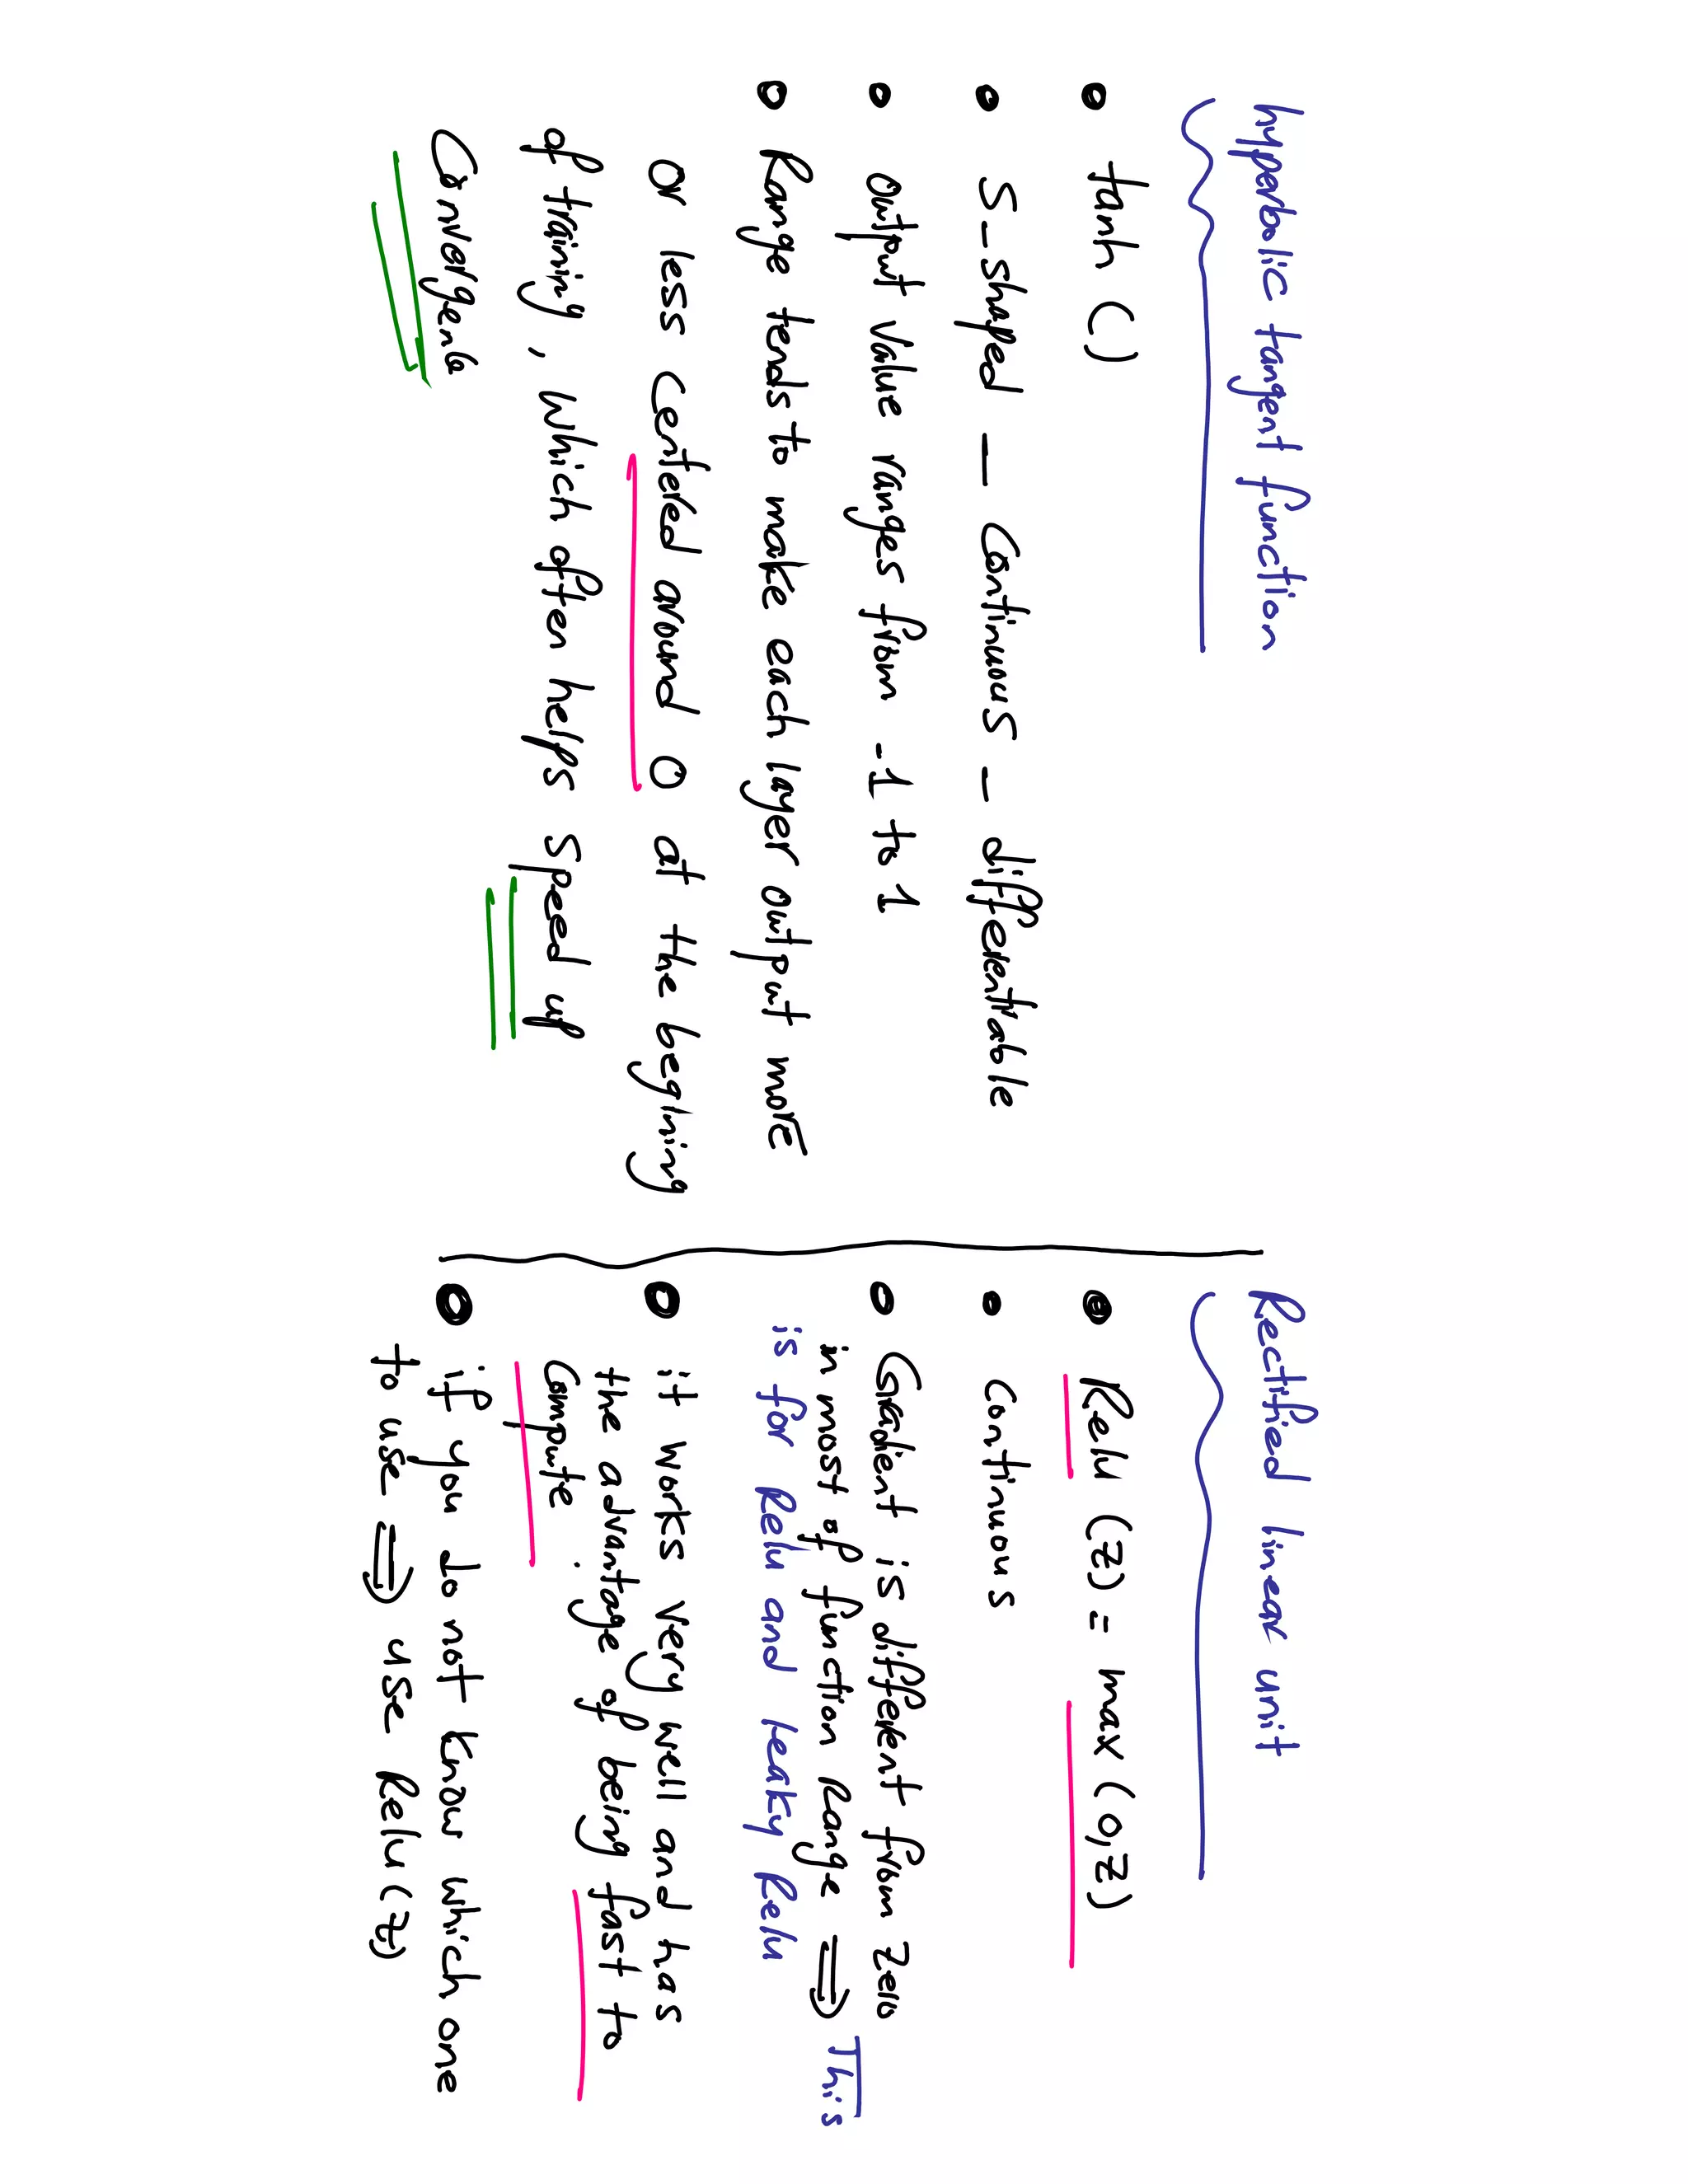 hyperbolic tangent function
• tanh ()
• S-shaped — Continuous - differentiable
• output value ranges from -1 to 1
• Range tends to make each layer output more
or less centered around 0 at the begining
of training, which often helps speed up
Convergence
Rectified linear unit
• Relu (z) = max (0,z)
• continuous
• Gradient is different from zero
in most of function range ⇒ This
is for Relu and leaky Relu
• it works very well and has
the advantage of being fast to
compute.
• if you do not know which one
to use ⇒ use Relu(z)